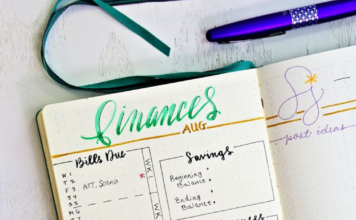 Finances
AUG
Bills Due
WK
Savings
W 1
T 2
F 3
S 4
S 5
M 6
ATT, Scana
Beginning
Balance
Ending
Balance
WK
post ideas